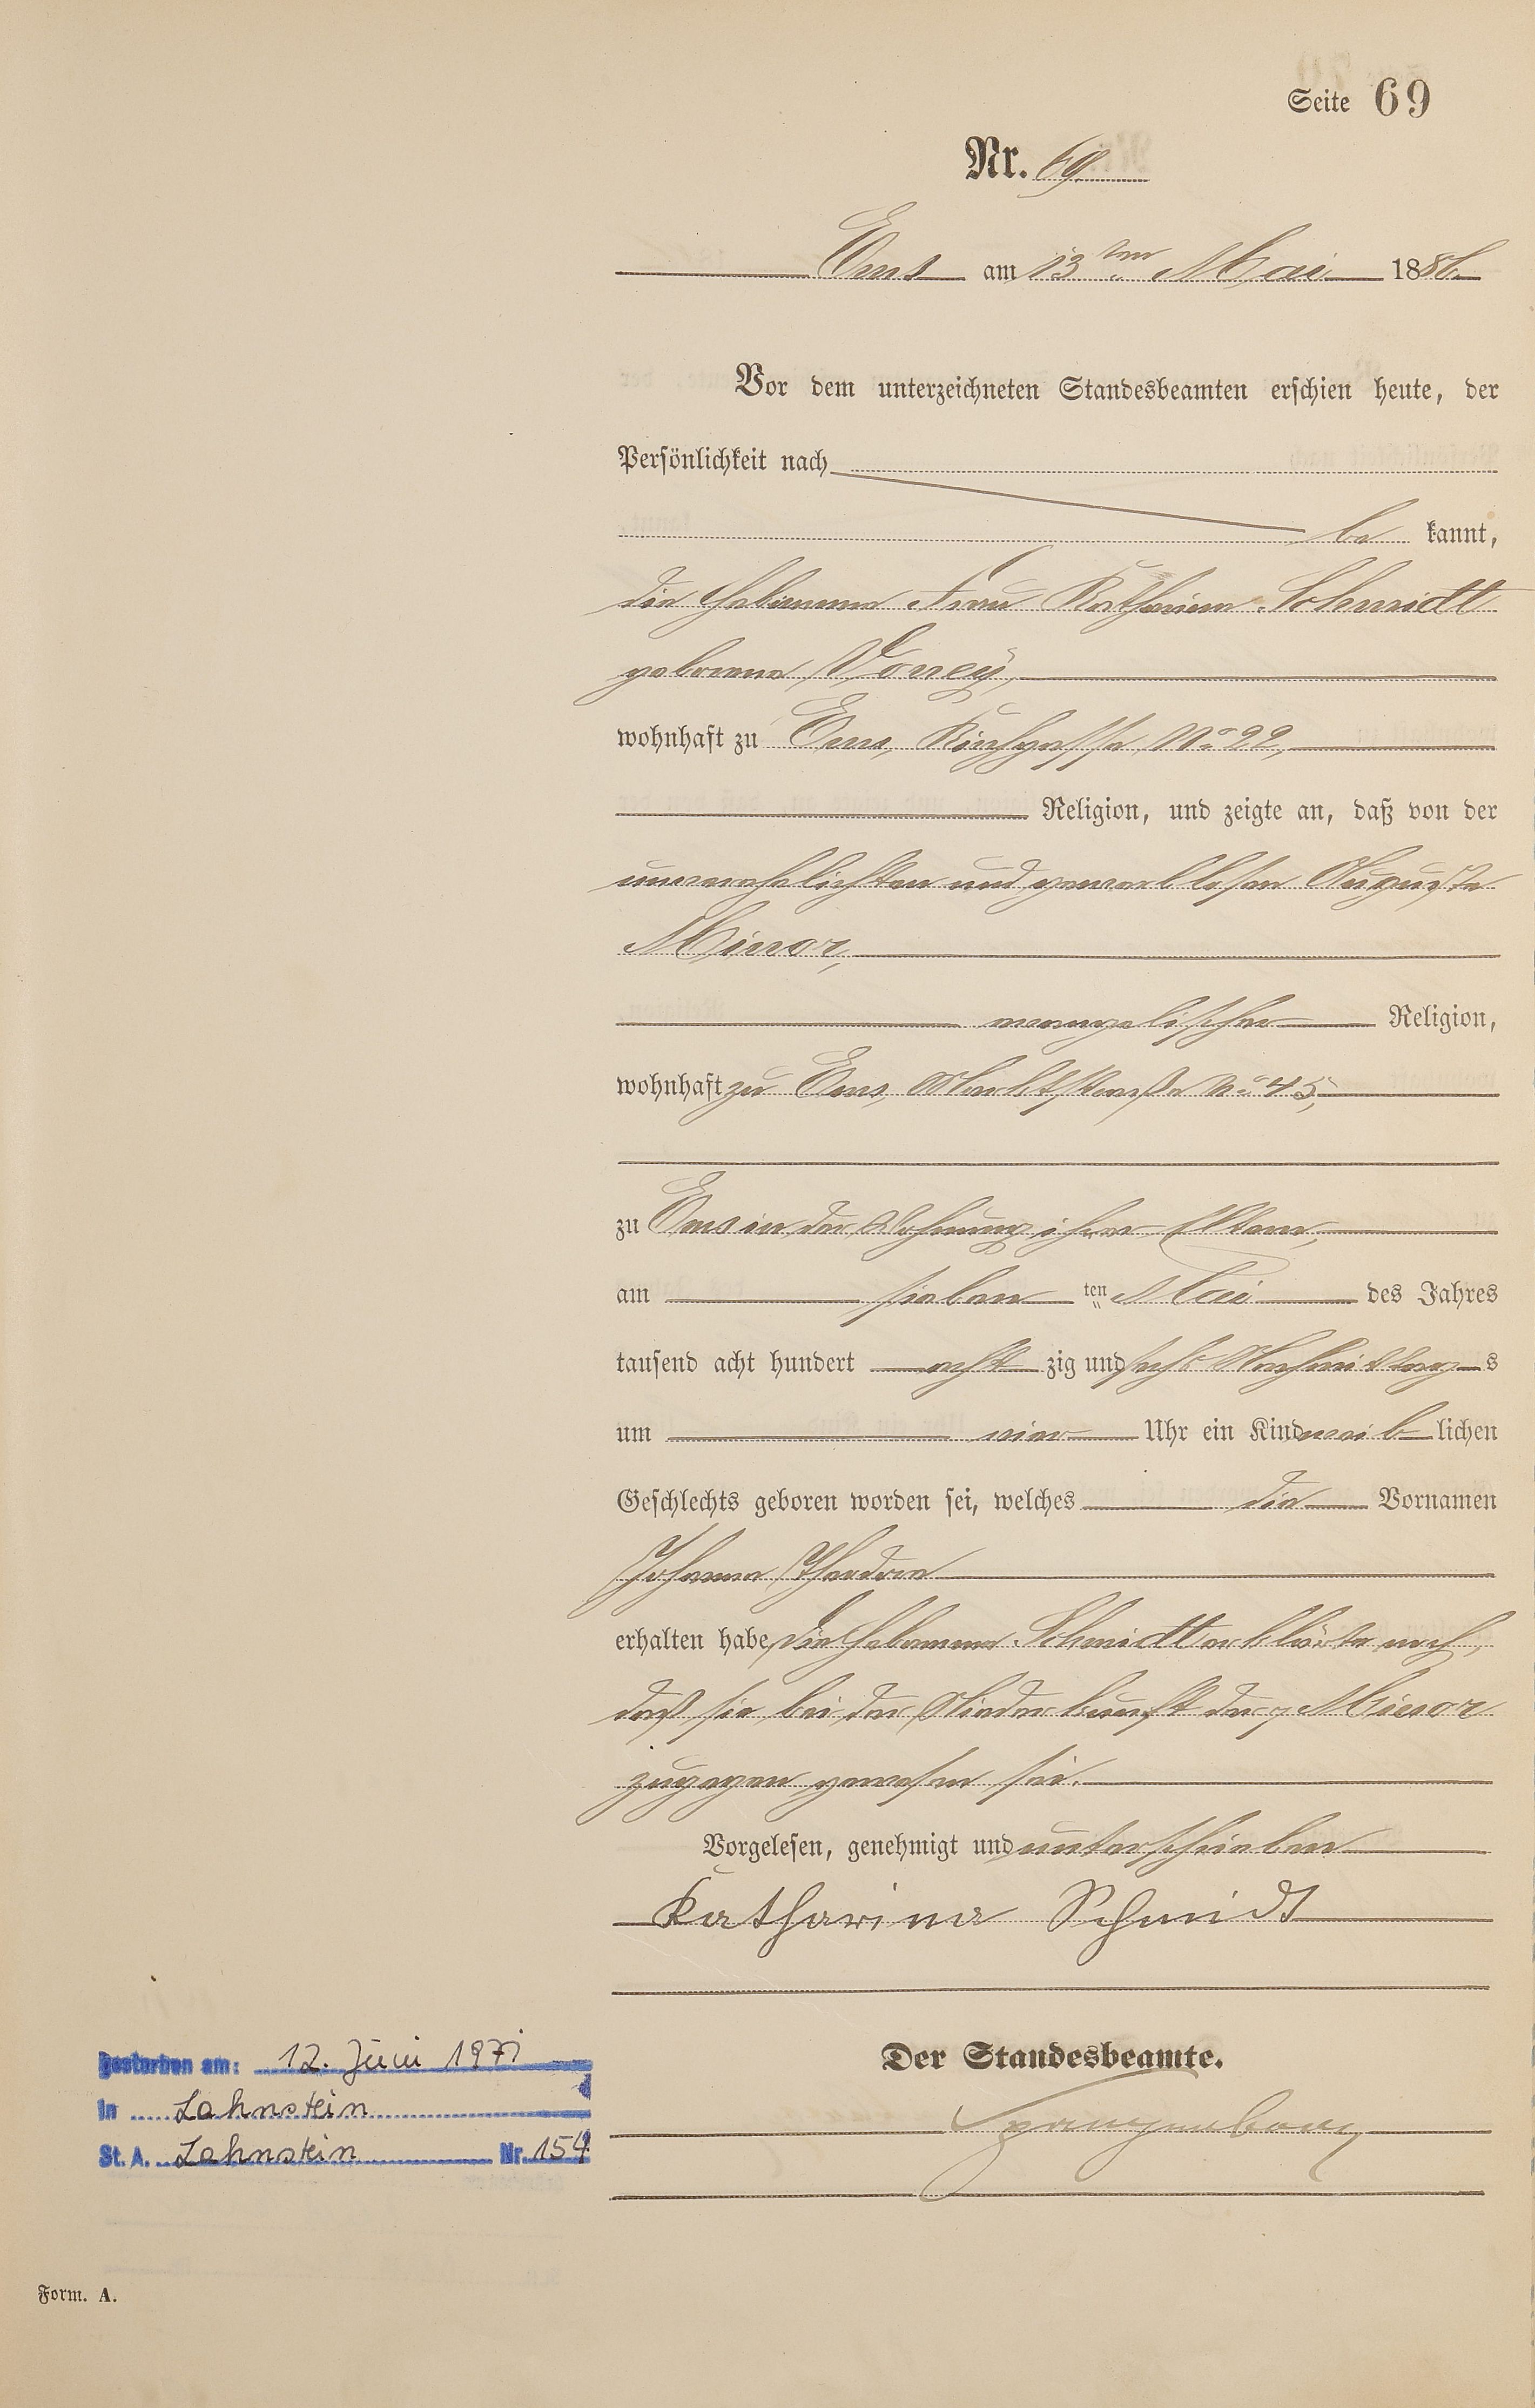 Seite 69
Nr. 69.
Ems am 13ten Mai 1886.
Vor dem unterzeichneten Standesbeamten erschien heute, der
Persönlichkeit nach
be kannt,
die Hebamme Frau Katharina Schmidt
geborene
wohnhaft zu Ems, Kirchgasse No 22,
Religion, und zeigte an, daß von der
unverehelichten und gewerblosen Auguste
Minor,
evangelischer Religion,
wohnhaft zu Ems, Marktstraße No 45,
zu Ems in der Wohnung ihrer Eltern,
am sieben ten Mai des Jahres
tausend acht hundert acht zig und sechs Nachmittag s
um vier Uhr ein Kind weib lichen
Geschlechts geboren worden sei, welches die Vornamen
Johanna Theodora
erhalten habe, die Hebamme Schmidt erklärte noch,
daß sie bei der Niederkunft der p Minor
zugegen gewesen sei.
Vorgelesen, genehmigt und unterschrieben
Katharina Schmidt
Der Standesbeamte.
Spangenberg
gestorben am: 12. Juni 1971
in Lahnstein
St. A. Lahnstein Nr. 154
Form. A.